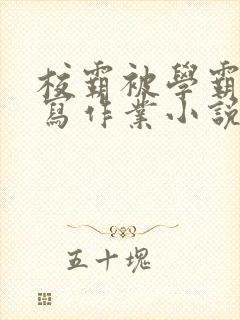 校霸被學霸
寫作業小說
五十塊